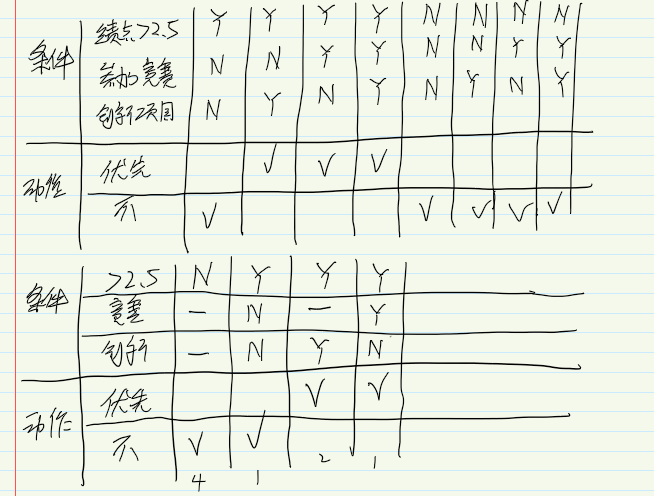 条件 绩点>2.5 Y Y Y Y N N N N
参加竞赛 N N Y Y N N Y Y
创新项目 N Y N Y N Y N Y
动作 优先 √ √ √
不 √ √ √ √ √
条件 >2.5 N Y Y Y
竞赛 — N — Y
创新 — N Y N
动作 优先 √ √
不 √ √
4 1 2 1